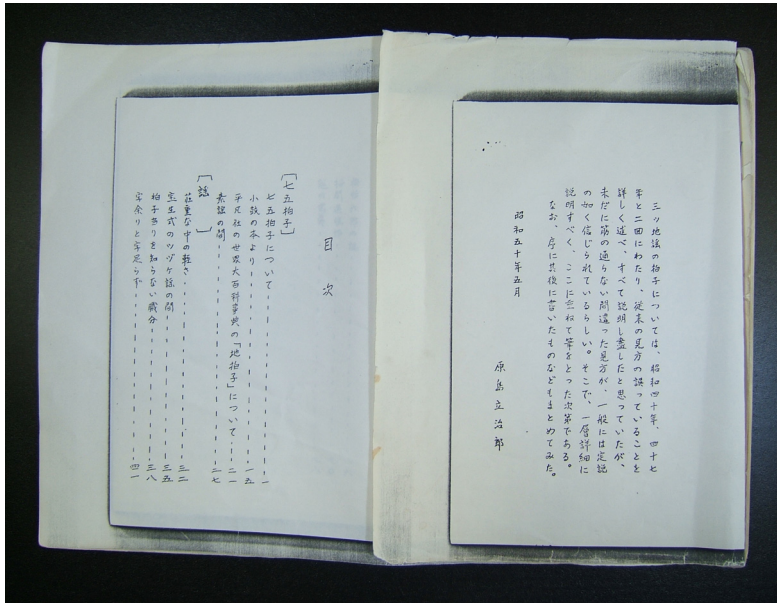 三ツ地謡の拍子については、昭和四十年、四十七
年と二回にわたり、従来の見方の誤っていることを
詳しく述べ、すべて説明し盡したと思っていたが、
未だに筋の通らない間違った見方が、一般には定説
の如く信じられているらしい。そこで、一層詳細に
説明すべく、ここに重ねて筆をとった次第である。
なお、序に其後に書いたものなどもまとめてみた。
昭和五十年五月
原島立治郎
目次
〔七五拍子〕
七五拍子について 一
小鼓の本より 一五
平凡社の世界大百科事典の「地拍子」について 二一
素謡の間 二七
〔謡〕
荘重な中の軽さ 三二
宝生式のツヅケ謡の間 三五
拍子当りを知らない職分 三八
字余りと字足らず 四一